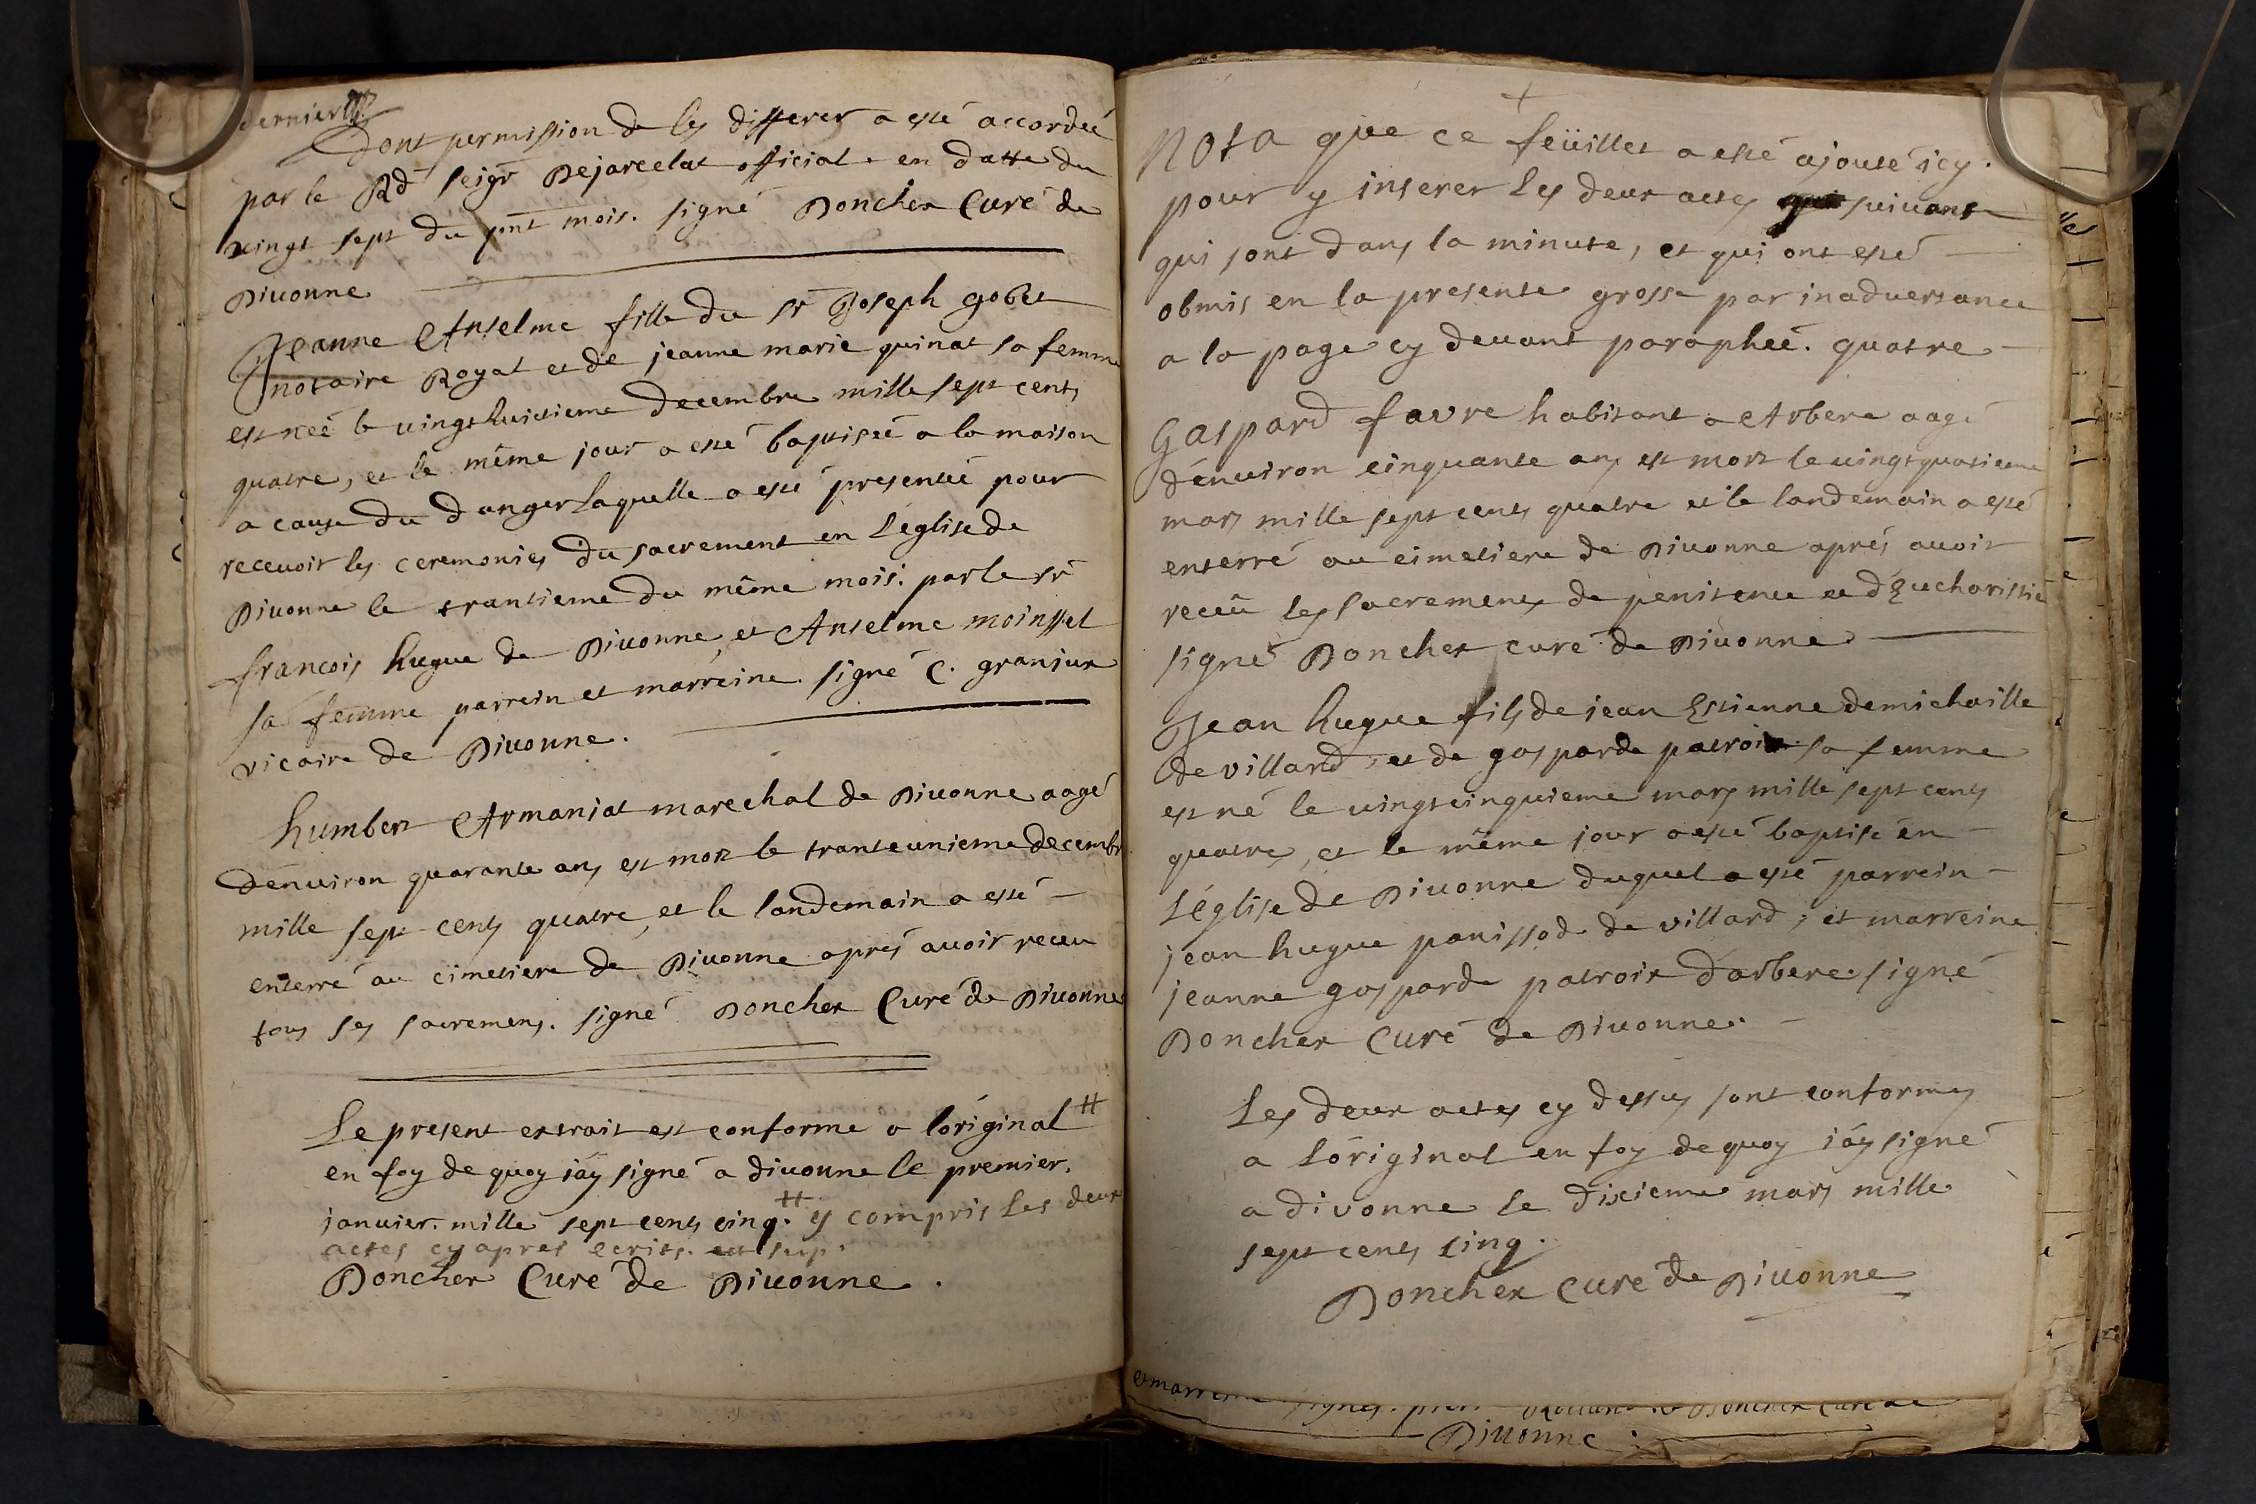 dernier
Dont permission de les differer a esté accordeé
par le Rd seigr Dejarcelat official en datte du
vingt sept du pnt mois. signé Doncher Curé de
Divonne
Jeanne Anselme fille du sr Joseph gobet
notaire Royal et de jeanne marie quinat sa femme
est neé le vingthuictieme decembre mille sept cents
quatre, et le même jour a esté baptiseé a la maison
a cause du danger laquelle a esté presenteé pour
recevoir les ceremonies du sacrement en L'église de
Divonne le trantieme du même mois. par le sr
francois hugue de Divonne et Anselme moinssel
sa femme parrein et marreine. signé C. granjux
vicaire de Divonne.
humbert Armaniat marechal de Divonne aagé
d'environ quarante ans est mort le tranteunieme decembr
mille sept cents quatre, et le landemain a esté
enterré au cimetiere de Divonne aprés avoir receu
tous ses sacremens. signé Doncher Curé de Divonne
Le present extrait est conforme a l'original #
en foy de quoy i'ay signé a divonne le premier
janvier mille sept cents cinq. # y compris les deux
actes cy apres ecrits.
Doncher Curé de Divonne.
+
Nota que ce feüillet a esté ajouté icy.
pour y inserer les deux actes suivant
qui sont dans la minute, et qui ont esté
obmis en la presente grosse par inadvertance
a la page cy devant parapheé. quatre
Gaspard favre habitant a Arbere aagé
d'environ cinquante ans est mort le vingtquatrieme
mars mille sept cents quatre et le landemain a esté
enterré au cimetiere de Divonne aprés avoir
receü les sacrements de penitence et d'Eucharistie
signé Doncher curé de Divonne
Jean hugue fils de jean Estienne demichaille
de villard, et de gasparde patroix sa femme
est né le vingtcinquieme mars mille sept cents
quatre, et le même jour a esté baptisé en
L'église de Divonne duquel a esté parrein
jean hugue panissod de villard, et marreine
jeanne gasparde patroix d'arbere. signé
Doncher Curé de Divonne.
Les deux actes cy dessus sont conformes
a L'original en foy de quoy i'ay signé
a divonne le dixieme mars mille
sept cents cinq.
Doncher Curé de Divonne
et marreine signes. Doncher Curé de
Divonne.